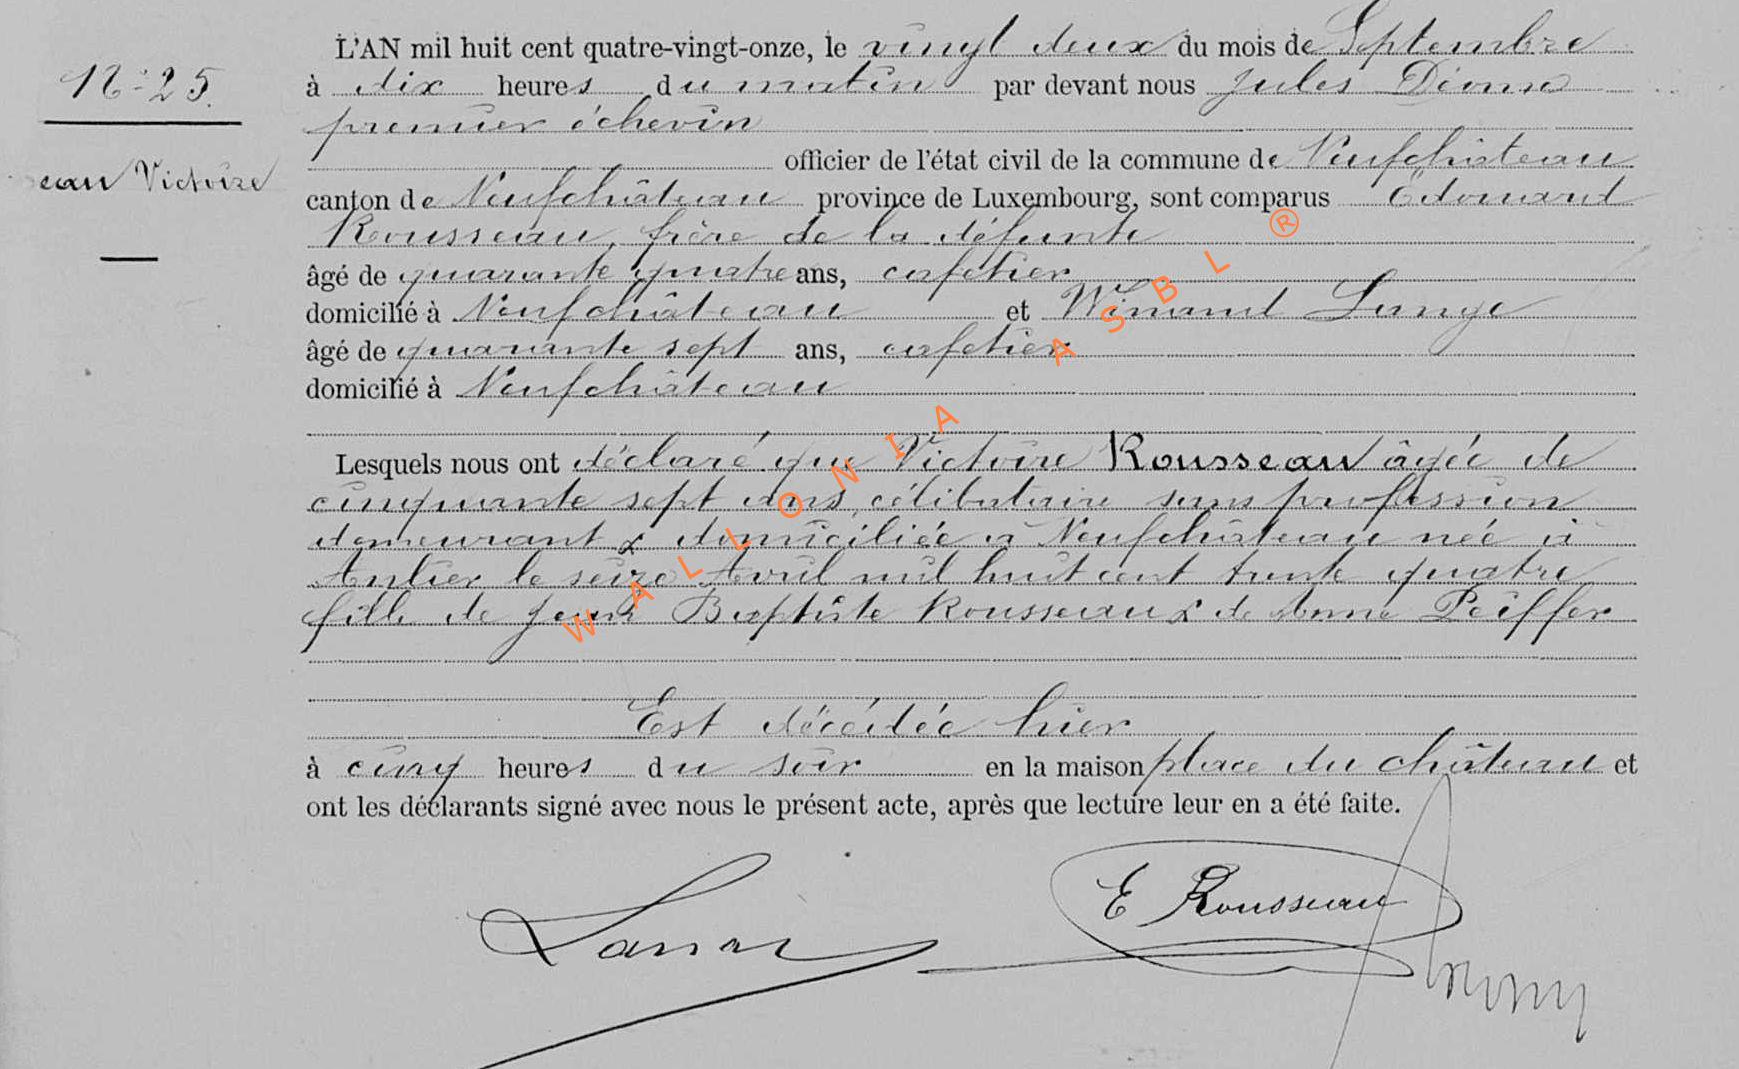 L'AN mil huit cent quatre-vingt-onze, le vingt deux du mois de Septembre
à dix heures du matin par devant nous Jules
premier échevin
officier de l'état civil de la commune de Neufchâteau
canton de Neufchâteau province de Luxembourg, sont comparus Edouard
Rousseau, frère de la défunte
âgé de quarante quatre ans, cafetier
domicilié à Neufchâteau et Winand Lange
âgé de quarante sept ans, cafetier
domicilié à Neufchâteau
Lesquels nous ont déclaré que Victoire Rousseau âgée de
cinquante sept ans, célibataire sans profession
demeurant & domiciliée à Neufchâteau née à
Anlier le seize Avril mil huit cent trente quatre
fille de Jean Baptiste Rousseau & de Anne Peiffer
Est décédée hier
à cinq heures du soir en la maison place du château et
ont les déclarants signé avec nous le présent acte, après que lecture leur en a été faite.
E Rousseau
eau Victoire
WALLONIA ASBL ®